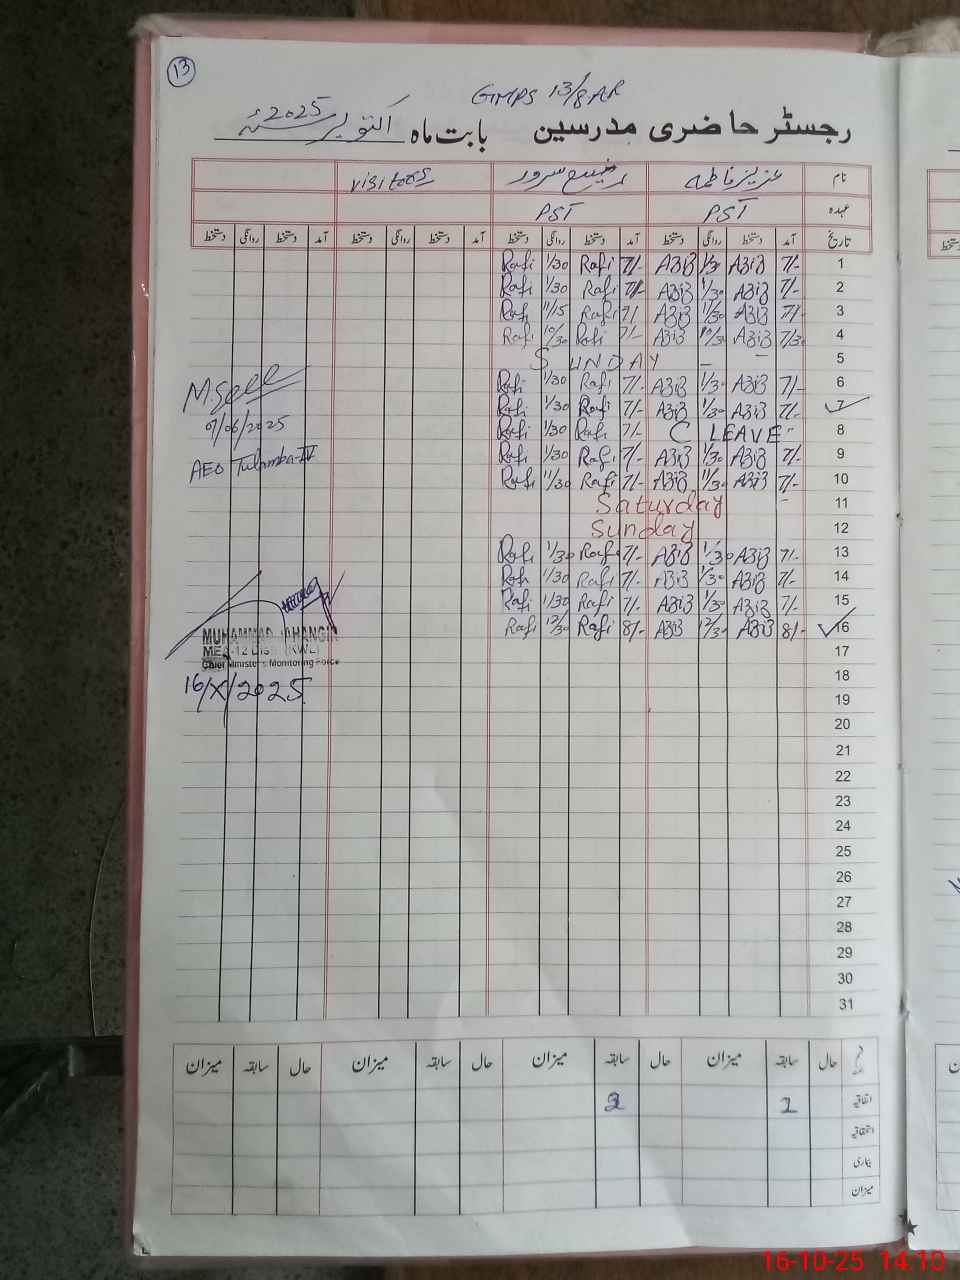 13
GMPS 13/8AR
رجسٹر حاضری مدرسین بابت ماہ اکتوبر سنہ 2025
نام عزیز فاطمہ رفیع سرور visitors
عہدہ PST PST
تاریخ آمد دستخط روانگی دستخط آمد دستخط روانگی دستخط آمد دستخط روانگی دستخط آمد دستخط روانگی دستخط
1 7/- AZiZ 1/30 AZiZ 7/- Rafi 1/30 Rafi
2 7/- AZiZ 1/30 AZiZ 7/- Rafi 1/30 Rafi
3 7/- AZiZ 11/30 AZiZ 7/- Rafi 11/15 Rafi
4 7/30 AZiZ 10/30 AZiZ 7/- Rafi 10/30 Rafi
5 SUNDAY - -
6 7/- AZiZ 1/30 AZiZ 7/- Rafi 1/30 Rafi
7 7/- AZiZ 1/30 AZiZ 7/- Rafi 1/30 Rafi
8 C LEAVE 7/- Rafi 1/30 Rafi
9 7/- AZiZ 1/30 AZiZ 7/- Rafi 1/30 Rafi
10 7/- AZiZ 11/30 AZiZ 7/- Rafi 11/30 Rafi
11 Saturday -
12 Sunday
13 7/- AZiZ 1/30 AZiZ 7/- Rafi 1/30 Rafi
14 7/- AZiZ 1/30 AZiZ 7/- Rafi 1/30 Rafi
15 7/- AZiZ 1/30 AZiZ 7/- Rafi 1/30 Rafi
16 8/- AZiZ 12/30 AZiZ 8/- Rafi 12/30 Rafi
17
18
19
20
21
22
23
24
25
26
27
28
29
30
31
AEO Tulamba-IV
MUHAMMAD JAHANGIR
Chief Minister's Monitoring Force
16/X/2025
حال سابقہ میزان حال سابقہ میزان حال سابقہ میزان حال سابقہ میزان
اتفاقیہ 2
استحقاقیہ
بیماری
میزان
16-10-25 14:10